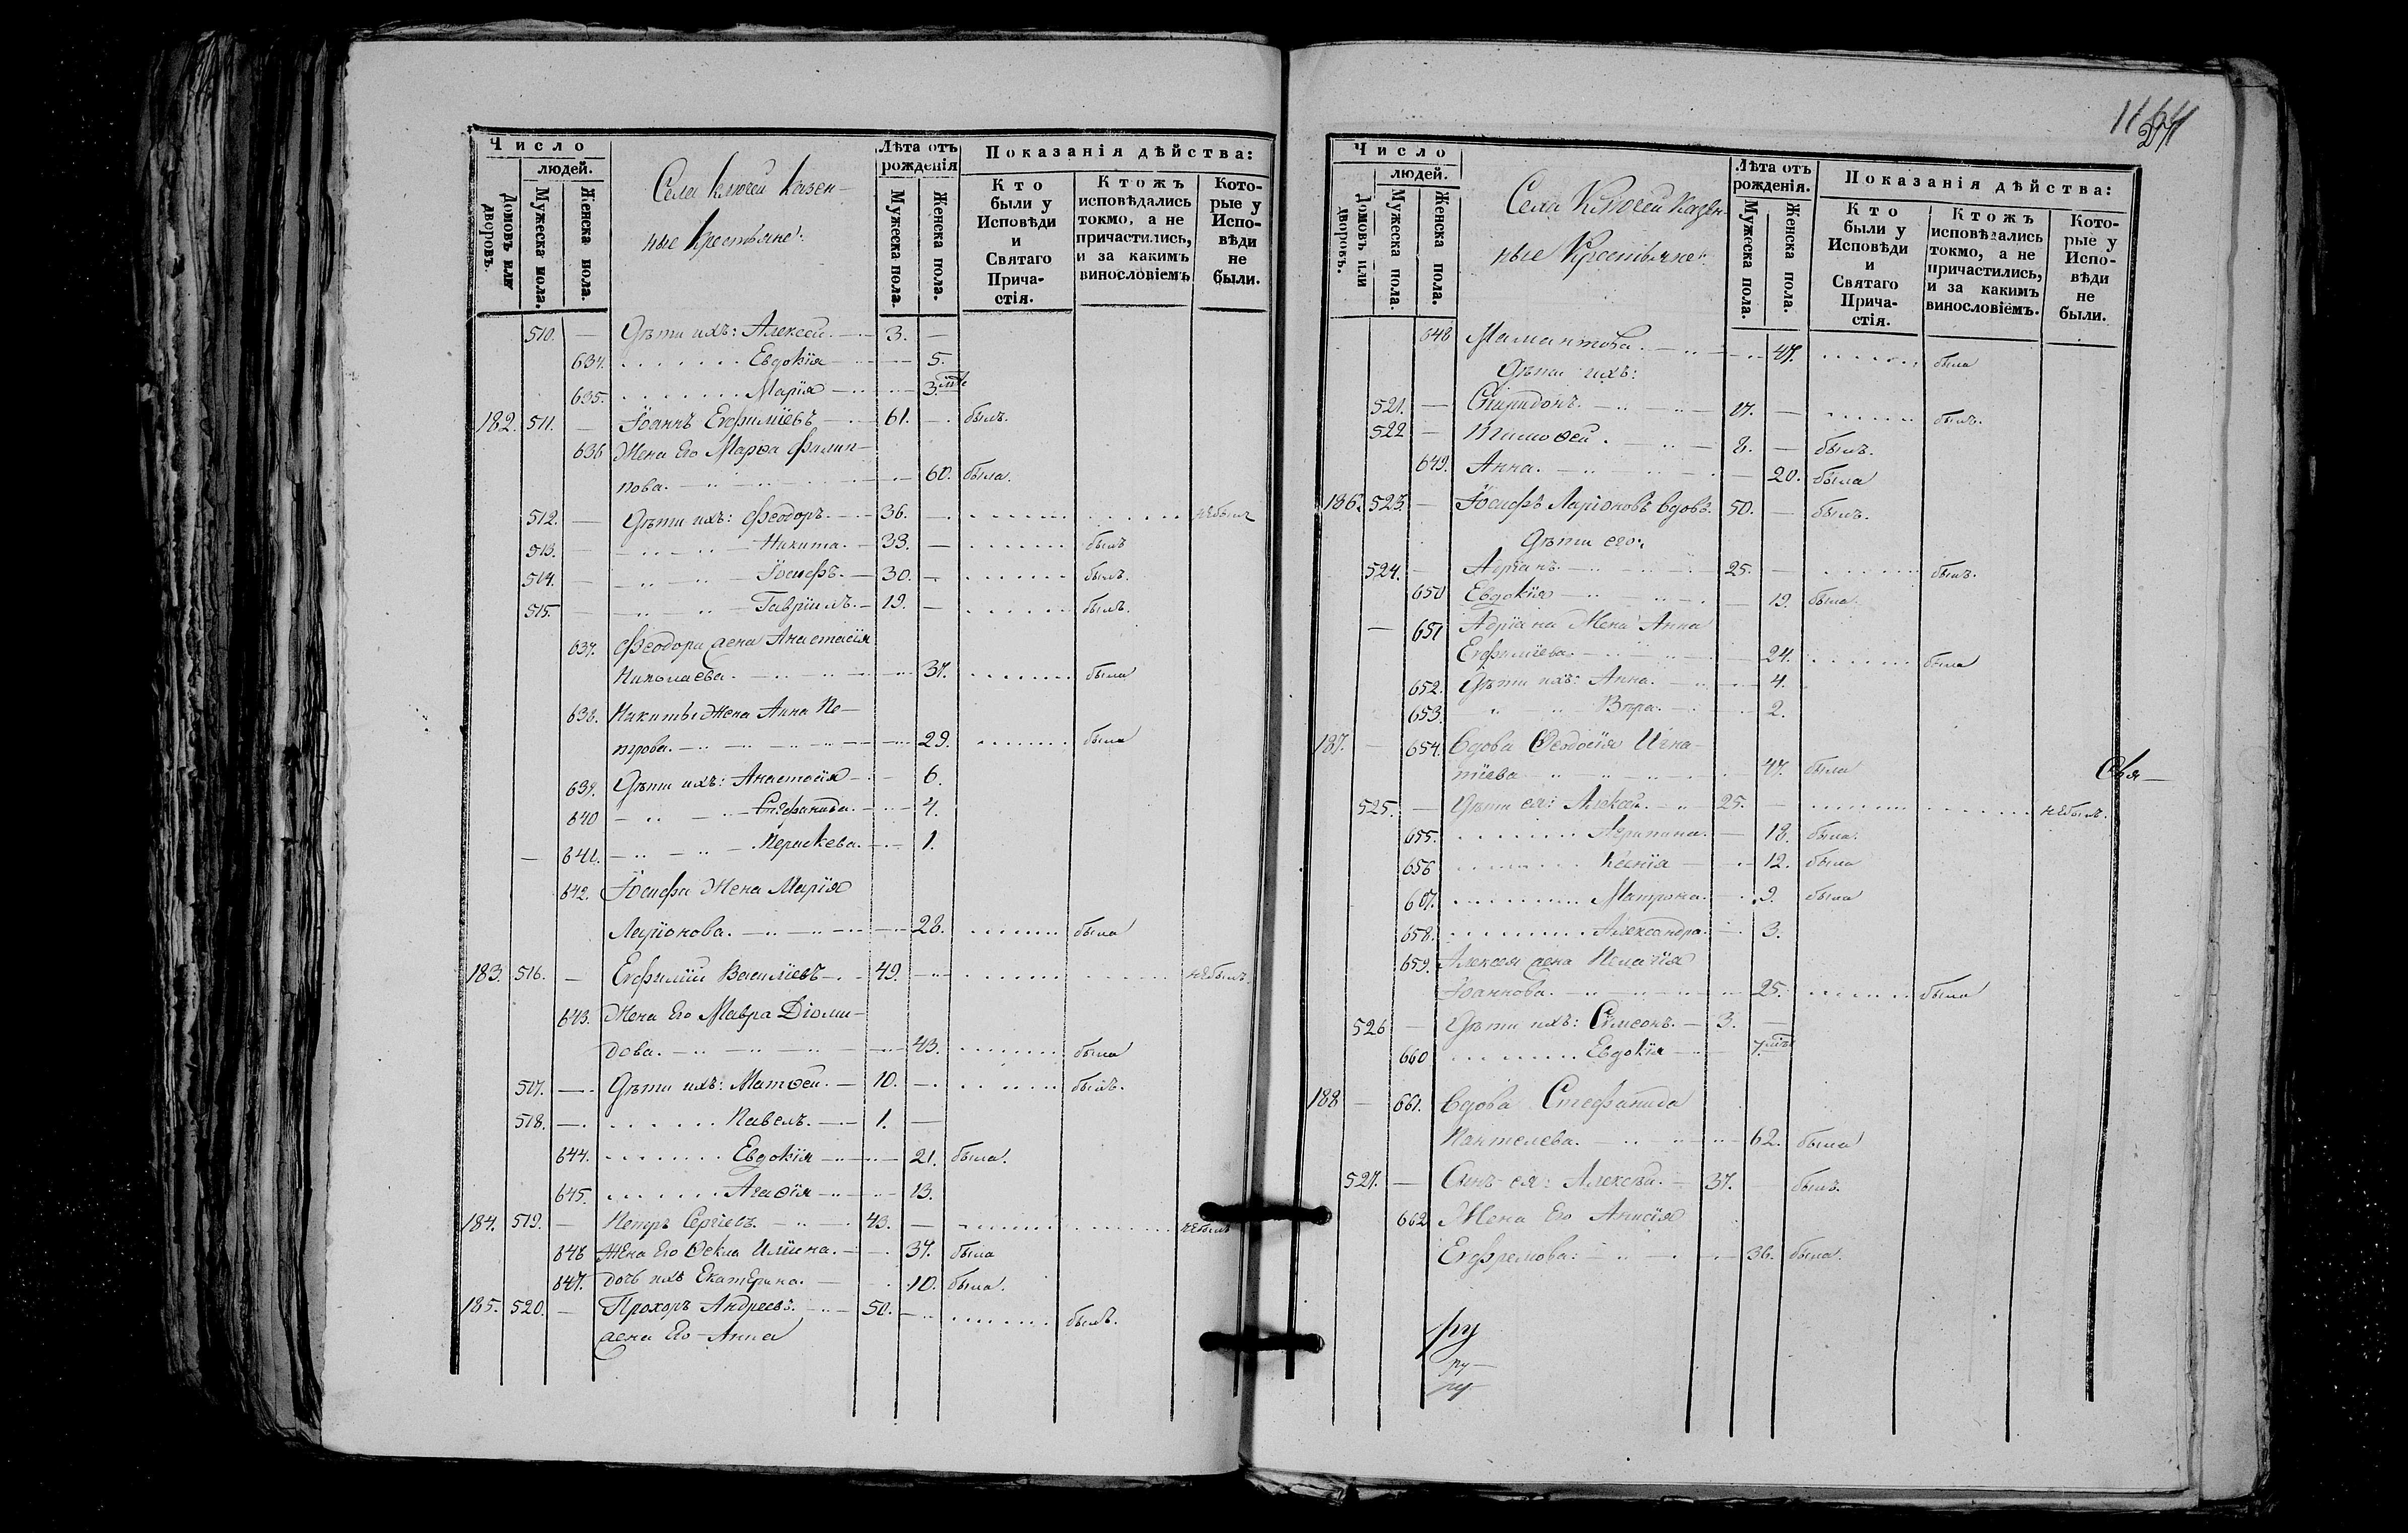 Число
людей.
Домовъ или дворовъ.
Мужеска пола.
Женска пола.
Села Ключей Казен-
ные Крестьяне:
Лѣта отъ рожденія
Мужеска пола.
Женска пола.
Показанія дѣйства:
Кто были у Исповѣди и Святаго Причастія.
Ктожъ исповѣдались токмо, а не причастились, и за какимъ винословіемъ
Которые у Исповѣди не были.
510. — Дѣти ихъ: Алексей. — 3. —
634. Евдокія — 5.
635. Марія — 3.
182. 511. — Іоаннъ Ефиміевъ — 61. — былъ.
636 Жена Его Марѳа Филип-
пова. — 60. была.
512. — Дѣти ихъ: Феодоръ. — 36. — небылъ
513. — Никита. — 33. — былъ
514. — Іосифъ. — 30. — былъ.
515. — Гавріилъ. — 19. — былъ.
637. Феодора жена Анастасія
Николаева. — 37. была
638. Никиты Жена Анна Пе-
трова. — 29. была
639. Дѣти ихъ: Анастасія — 6.
640 — Стефанида. — 4.
— 641. — Параскева. — 1.
642. Іосифа Жена Марія
Ларіонова. — 28. была
183. 516. — Ефимій Василіевъ — 49. — небылъ.
643. Жена Его Мавра Діоми-
дова. — 43. была
517. — Дѣти ихъ: Матѳей. — 10. — былъ.
518. — Павелъ. — 1. —
644. Евдокія — 21. была.
645. Агафія — 13.
184. 519. — Петръ Сергіевъ. — 43. — небылъ
646 Жена Его Ѳекла Иліина. — 37. была
647. дочь ихъ Екатерина. — 10. была.
185. 520. — Прохоръ Андреевъ. — 50. — былъ.
жена Его Анна
Число
людей.
Домовъ или дворовъ.
Мужеска пола.
Женска пола.
Села Ключей Казен-
ные Крестьяне:
Лѣта отъ рожденія.
Мужеска пола.
Женска пола.
Показанія дѣйства:
Кто были у Исповѣди и Святаго Причастія.
Ктожъ исповѣдались токмо, а не причастились, и за какимъ винословіемъ.
Которые у Исповѣди не были.
648 Мамантова. — 47. была
Дѣти ихъ:
521. — Спиридонъ. — 17. — былъ.
522 — Тимоѳей. — 8. — былъ.
649. Анна. — 20. была
186. 523. — Іосифъ Ларіоновъ вдовъ. 50. — былъ.
Дѣти его:
524. — Адріанъ. — 25. — былъ.
650 Евдокія — 19. была.
— 651 Адріана Жена Анна
Ефиміева. — 24. была
652. Дѣти ихъ: Анна. — 4.
653. Вѣра. — 2.
187. — 654. Вдова Ѳеодосія Игна-
тіева — 47. была
Свя—
525. — Дѣти ея: Алексей. — 25. — небылъ.
655. Агрипина. — 18. была.
656 Ксенія — 12. была
607. Матрона. — 9. была
658. Александра. — 3.
659. Алексея жена Пелагія
Іоаннова. — 25. была
526 — Дѣти ихъ: Симеонъ. — 3. —
660 Евдокія — 7.
188 — 661. Вдова Стефанида
Пантелева. — 62. была
527. — Сынъ ея: Алексѣй. — 37. — былъ.
662 Жена Его Анисія
Ефремова: — 36. была.
ру
ру—
ру—